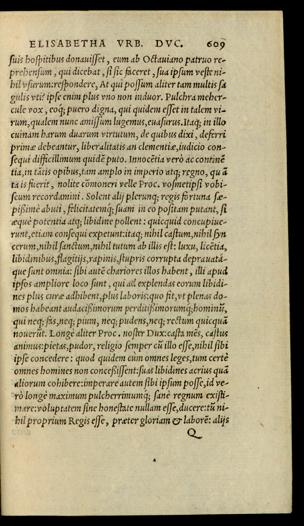 ELISABETHA VRB. DVC. 609
suis hospitibus donauisset, eum ab Octauiano patruo re-
prehensum, qui dicebat, si sic faceret, sua ipsum veste ni-
hil vsurum: respondere, At qui possum aliter tam multis sa
gulis vti? ipse enim plus vno non induor. Pulchra meher-
cule vox, eoq; puero digna, qui quidem esset in talem vi-
rum, qualem nunc amissum lugemus, euasurus. Itaq; in illo
cuinam harum duarum virtutum, de quibus dixi, deferri
primæ debeantur, liberalitatis an clementiæ, iudicio con-
sequi difficillimum quidē puto. Innocētia verò ac continē
tia, in tātis opibus, tam amplo in imperio atq; regno, quā
ta is fuerit, nolite cōmoneri velle Proc. vosmetipsi vobi-
scum recordamini. Solent alij plerunq; regis fortuna sæ-
pissimè abuti, felicitatemq; suam in eo positam putant, si
æquè potentia atq; libidine pollent: quicquid concupiue-
runt, etiam consequi expetunt: itaq; nihil castum, nihil syn
cerum, nihil sanctum, nihil tutum ab illis est: luxu, licētia,
libidinibus, flagitijs, rapinis, stupris corrupta deprauatá-
que sunt omnia: sibi autē chariores illos habent, illi apud
ipsos ampliore loco sunt, qui ad explendas eorum libidi-
nes plus curæ adhibent, plus laboris: quo fit, vt plenas do-
mos habeant audacissimorum perditissimorumq; hominū,
qui neq; fas, neq; pium, neq; pudens, neq; rectum quicquā
nouerūt. Longè aliter Proc. noster Dux: casta mēs, castus
animus: pietas, pudor, religio semper cū illo esse, nihil sibi
ipse concedere: quod quidem cùm omnes leges, tum certè
omnes homines non concessissent: suas libidines acrius quā
aliorum cohibere: imperare autem sibi ipsum posse, id ve-
rò longè maximum pulcherrimumq; sanè regnum existi-
mare: voluptatem sine honestate nullam esse, ducere: tū ni-
hil proprium Regis esse, præter gloriam & laborē: alijs
Q